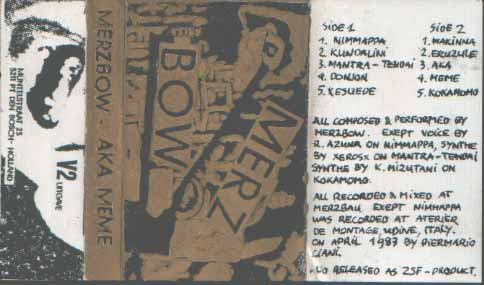 MUNTELSTRAAT 23
5211 PT DEN BOSCH - HOLLAND
V2
UITGAVE
MERZBOW - AKA MEME
MERZ
BOW
SIDE 1
1. NIMMAPPA
2. KUNDALINI
3. MANTRA-TENDAI
4. DONJON
5. XESUEDE
SIDE 2
1. MAKINNA
2. ERUZULE
3. AKA
4. MEME
5. KOKAMOMO
ALL COMPOSED & PERFORMED BY
MERZBOW. EXEPT VOICE BY
R. AZUNA ON NIMMAPPA, SYNTHE
BY XEROSX ON MANTRA-TENDAI
SYNTHE BY K. MIZUTANI ON
KOKAMOMO.
ALL RECORDED & MIXED AT
MERZBAU. EXEPT NIMMAPPA
WAS RECORDED AT ATERIER
DE MONTAGE, UDINE, ITALY.
ON APRIL 1987 BY PIERMARIO
CIANI.
RELEASED AS ZSF-PRODUCT.